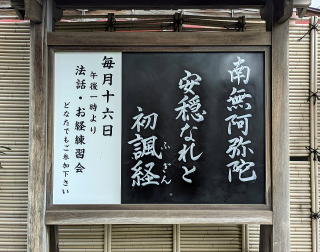 南無阿弥陀
安穏なれと
初諷経
ふぎん
毎月十六日
午後一時より
法話・お経練習会
どなたでもご参加下さい